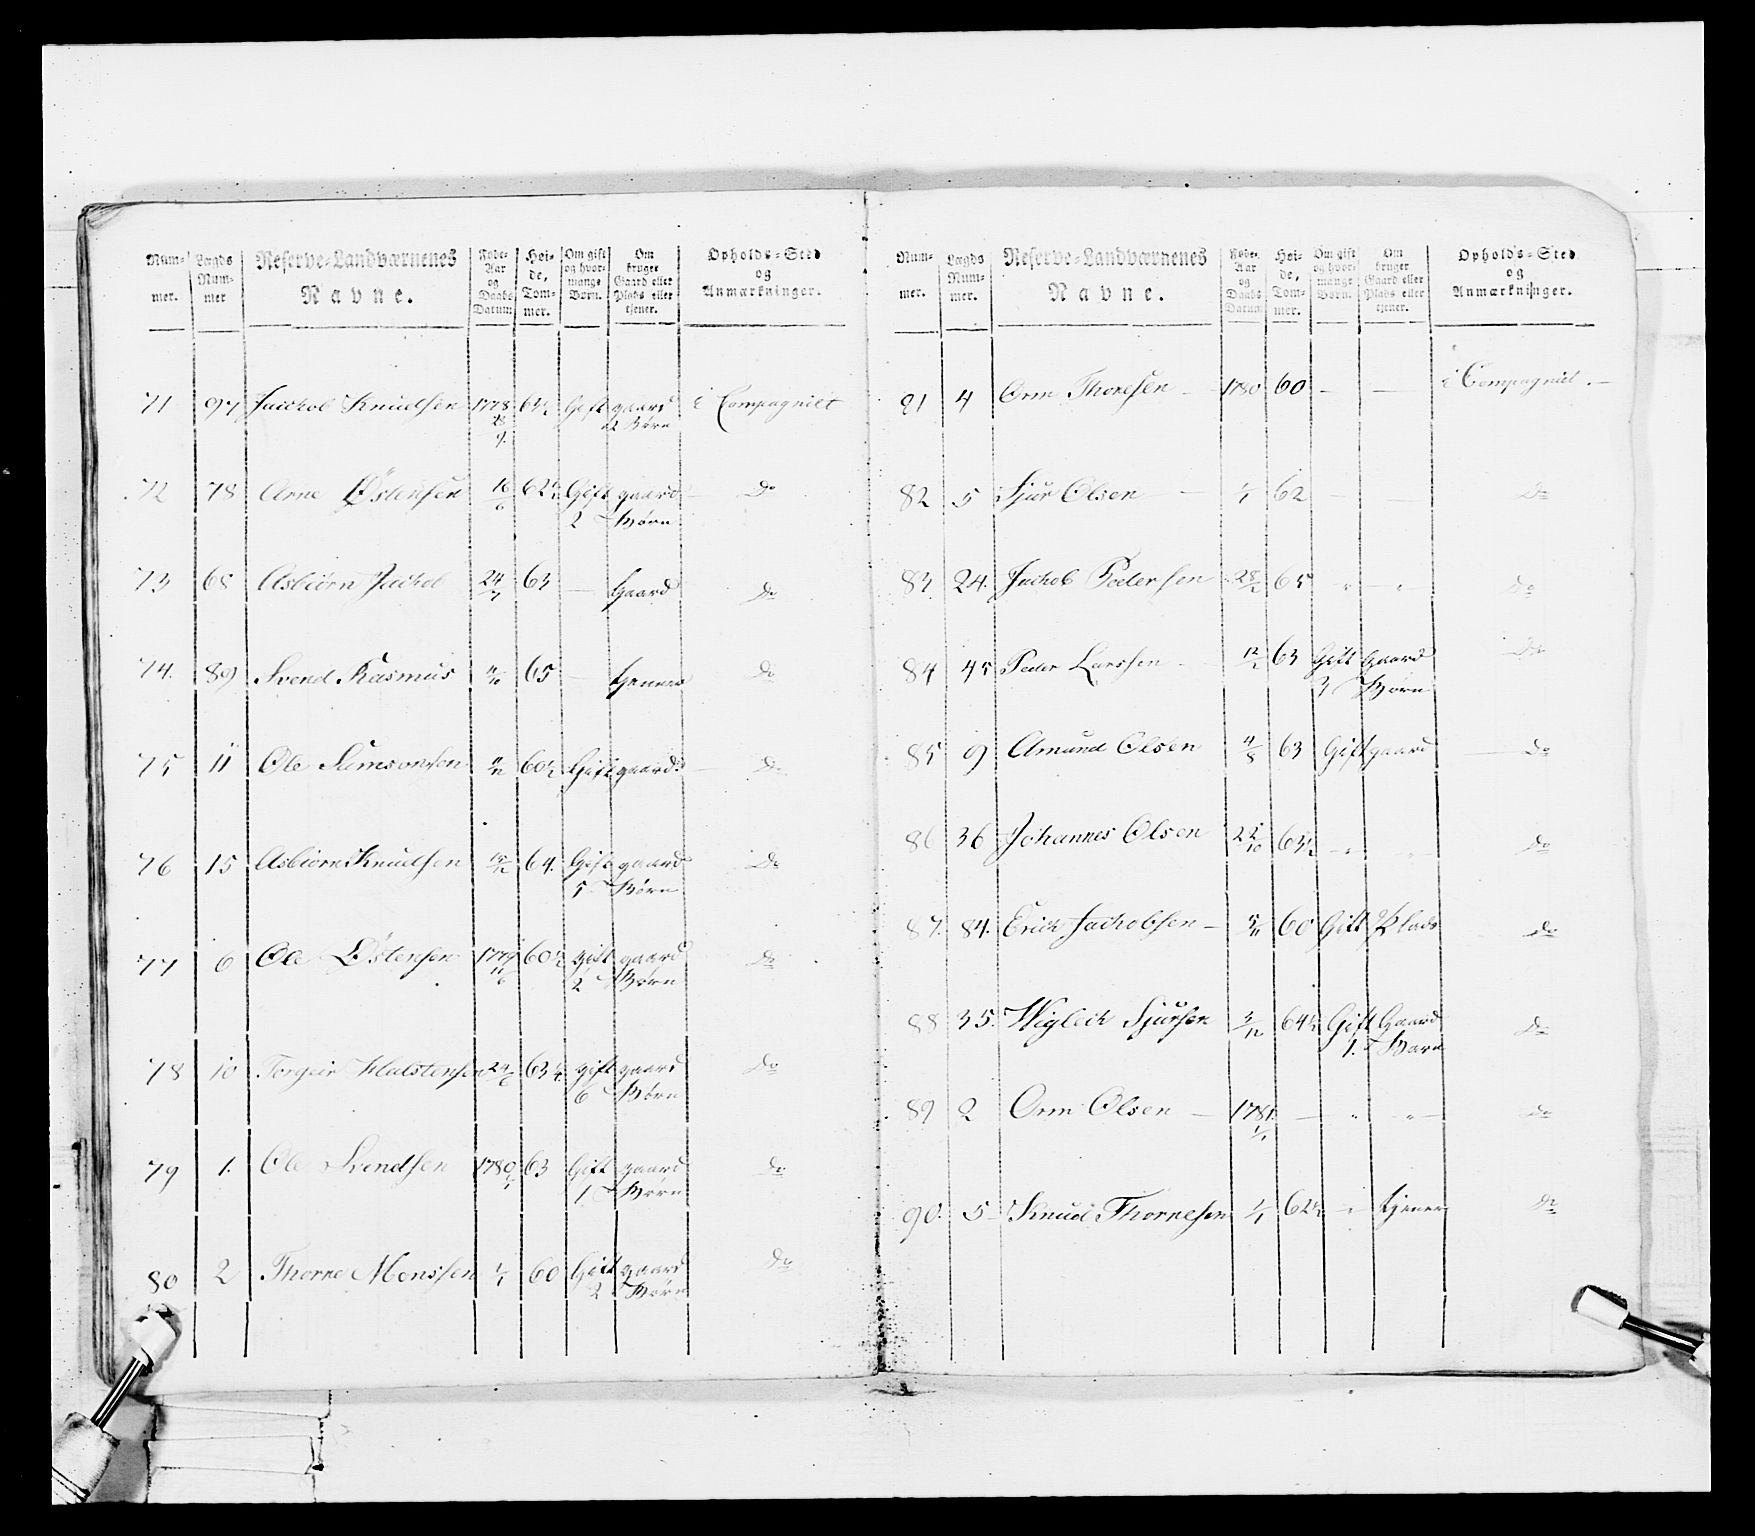 Num-mer. | Lægds Num-mer | Reserve-Landværnenes Navne. | Føde-Aar og Daabs Datum | Høi-de, Tom-mer. | Om gift og hvor-mange Børn. | Om bruger Gaard eller Plads eller tjener. | Opholds-Sted og Anmærkninger.
71 | 97 | Jaichob Knudsen | 1778 28/9 | 63½ | Gift | gaard 2 Børn | i Compagniet
72 | 78 | Arne Østensen | 16/6 | 62½ | Gift 2 | gaard Børn | Do
73 | 68 | Asbiørn Jachob | 24/7 | 63 | — | Gaard | Do
74. | 89 | Svend Rasmus | | 65 | — | tjenner | Do
75 | 11 | Ole Samsonsen | | 60½ | Gift | gaard | Do
76 | 15 | Asbiørn Knudsen | | 64. | Gift 5 | gaard Børn | Do
77 | 6 | Ole Østensen | 1779 16/6 | 60½ | gift 2 | gaard Børn | Do
78 | 10 | Torgeir Halstensen | 24/6 | 63¼ | gift 6 | gaard Børn | Do
79 | 1. | Ole Svendsen | 1780 1/1 | 63 | Gift 1 | gaard Børn | Do
80 | 2 | Thorne Monssen | 1/1 | 60 | Gift 2 | gaard Børn | Do
Num-mer. | Lægds Num-mer. | Reserve-Landværnenes Navne. | Føde-Aar og Daabs Datum | Høi-de, Tom-mer. | Om gift og hvor-mange Børn. | Om bruger Gaard eller Plads eller tjener. | Opholds-Sted og Anmærkninger.
81 | 4 | Orm Thoresen — | 1780 | 60 | — | — | i Compagniet. —
82 | 5 | Sjur Olsen — | 1/1 | 62 | — | — | Do
83 | 24. | Jachob Pedersen | 28/2 | 65 | „ | „ | Do
84 | 45 | Peder Larssen | 12/2 | 63 | Gift 3 | Gaard Børn | Do
85 | 9 | Amund Olsen | 4/8 | 63 | Gift | gaard | Do
86 | 36 | Johannes Olsen | 22/10 | 63½ | „ | „ | Do
87. | 84. | Erich Jachobsen — | 5/11 | 60 | Gift | Plads | Do
88 | 35. | Wigleich Sjursen | 3/12 | 64½ | Gift 1. | Gaard Barn | Do
89 | 2 | Orm Olsen — | 1781. 1/1 | — | „ | „ | Do
90. | 5 | Knud Thornesen | 1/1 | 62½ | „ | tjener | Do